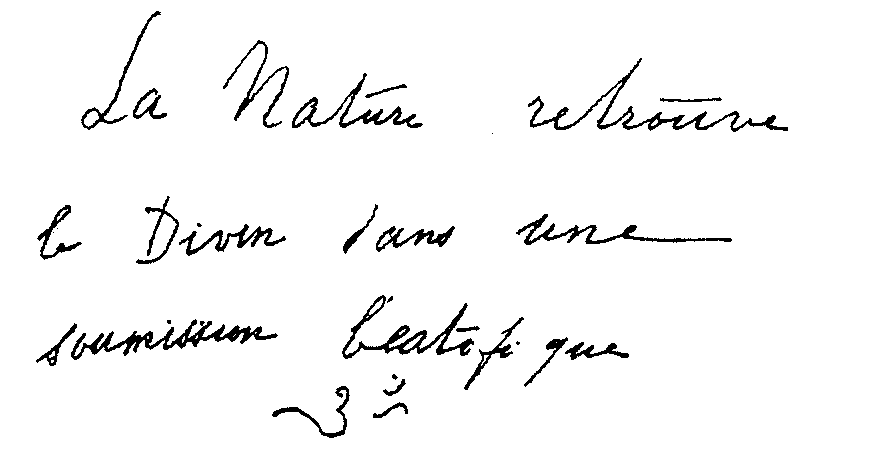 La Nature retrouve
le Divin dans une
soumission béatifique